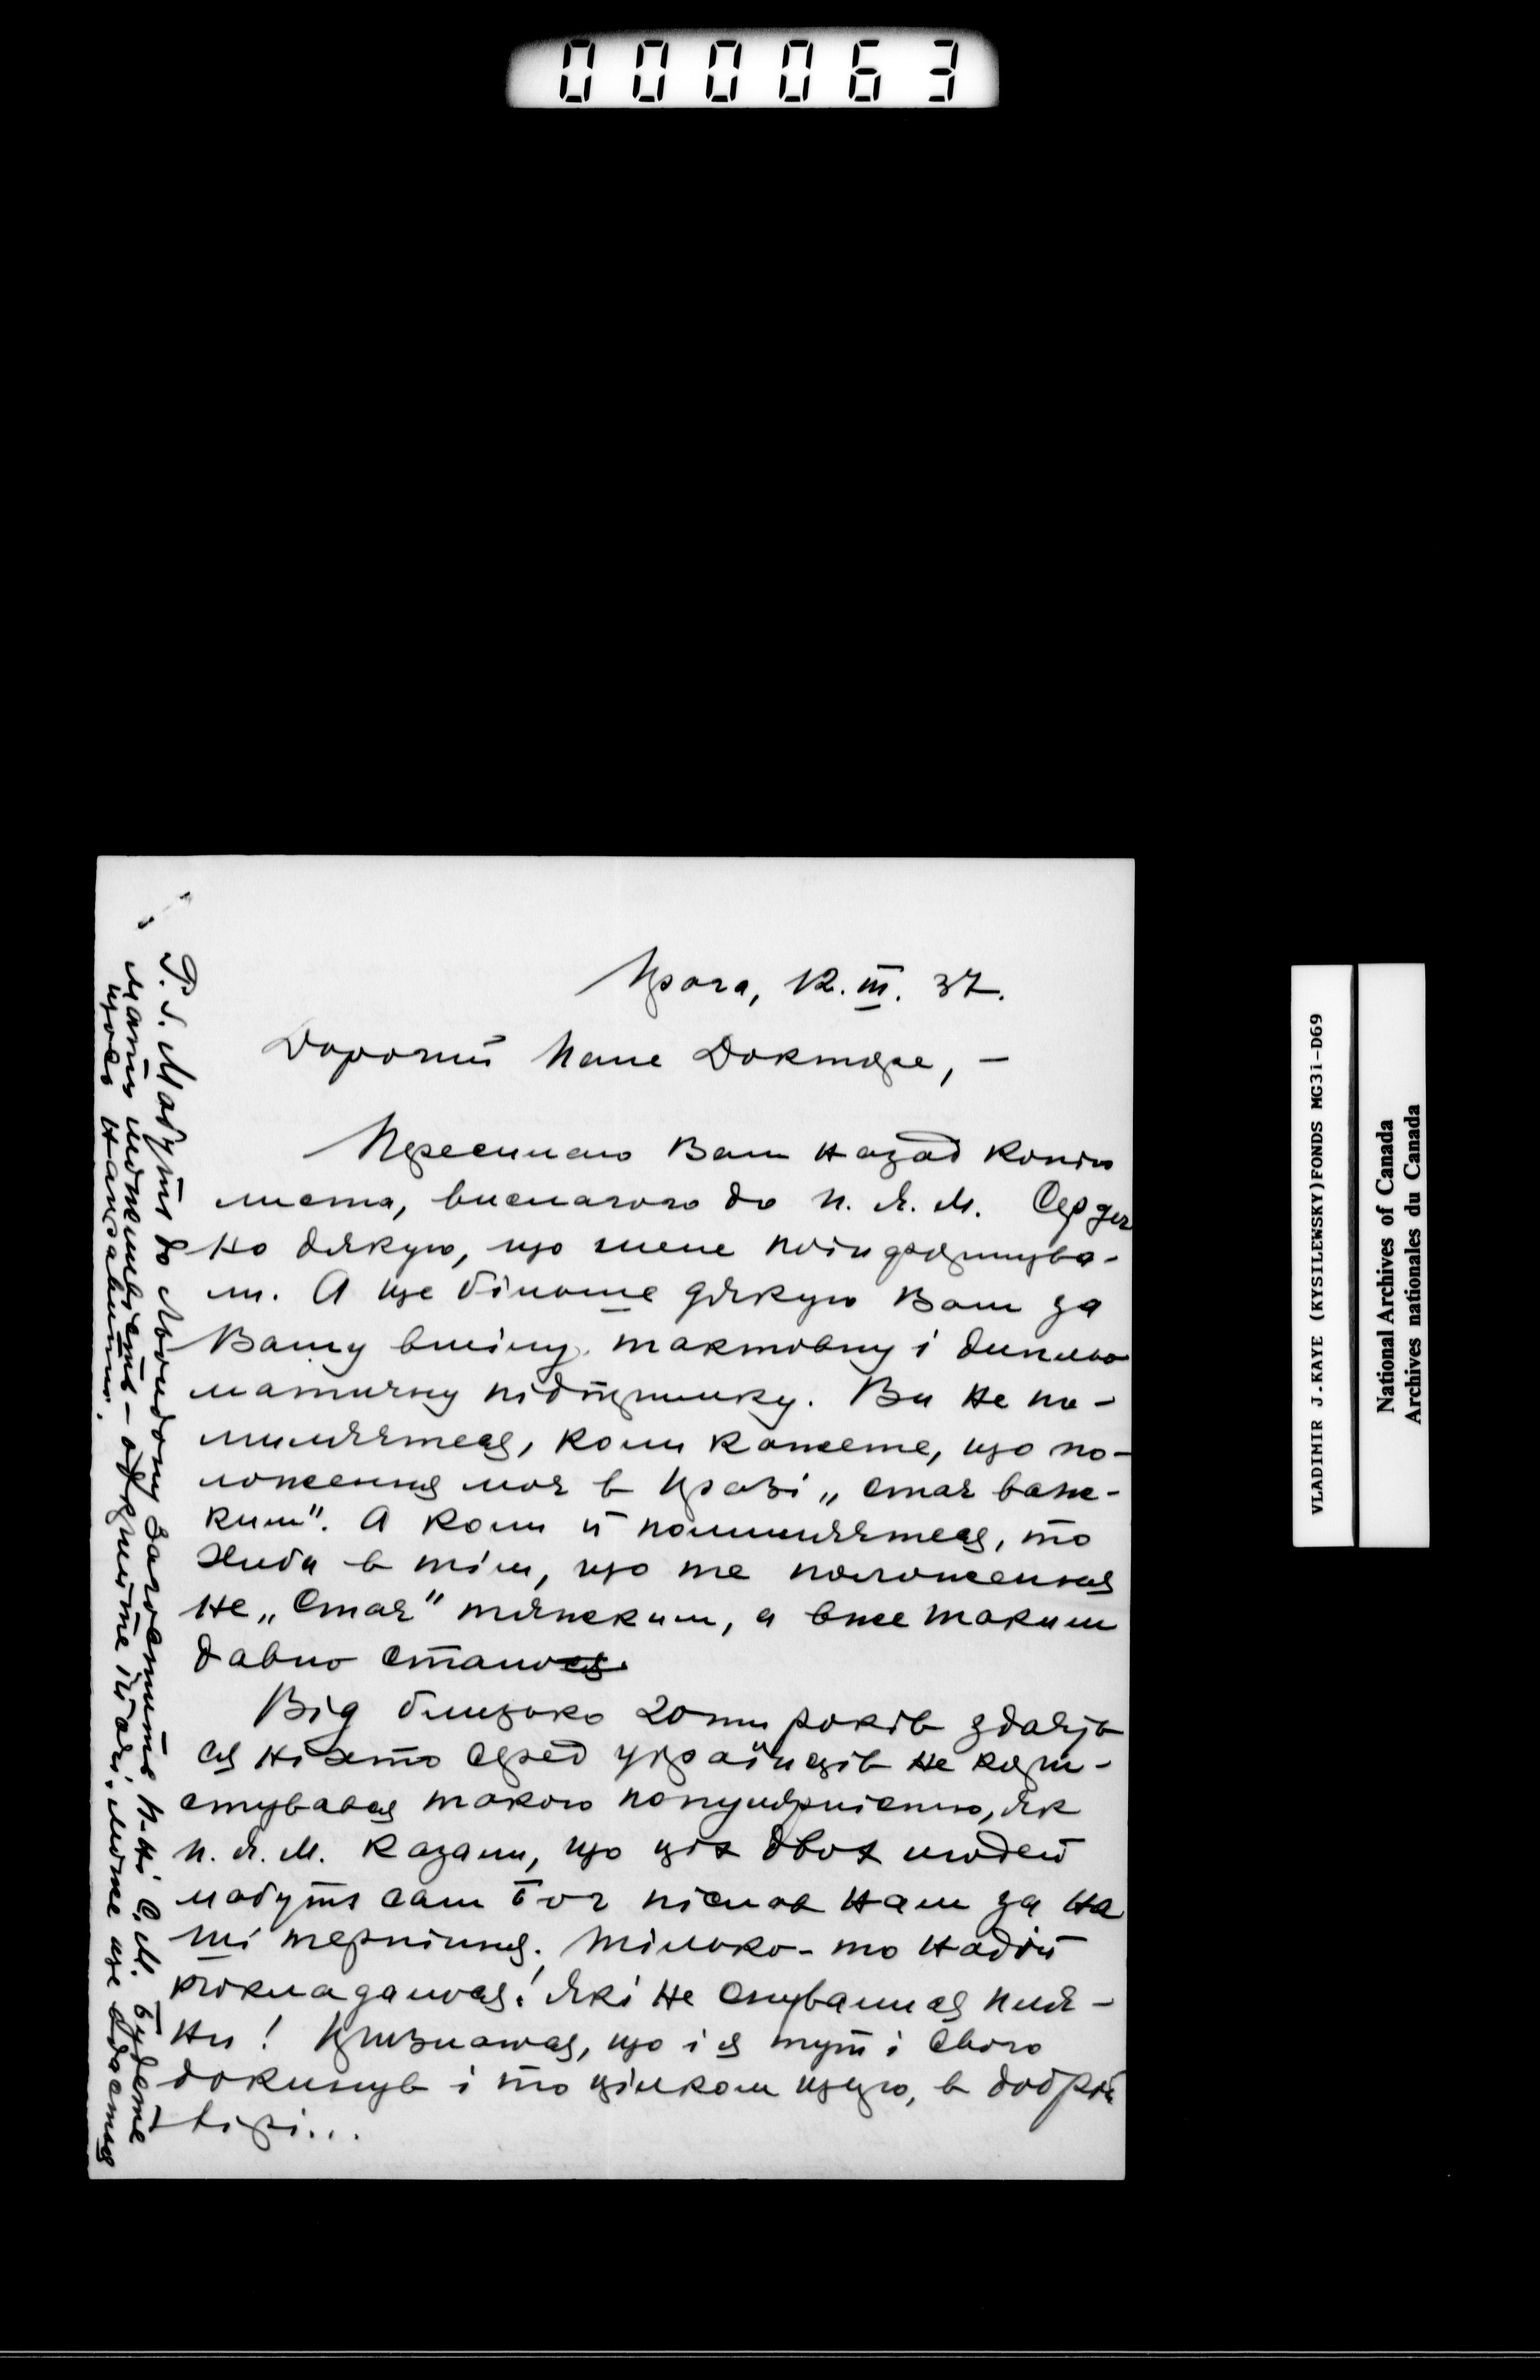 000063
Прага, 12. III. 37.
Дорогий Пане Докторе, –
Пересилаю Вам назад копію
листа, висланого до п. Я. М. Сердеч
но дякую, що мене поінформува-
ли. А ще більше дякую Вам за
Вашу вмілу, тактовну і дипльо
матичну підтримку. Ви не по-
миляєтеся, коли кажете, що по-
ложення моє в Празі „стає важ-
ким“. А коли й помиляєтеся, то
хиба в тім, що те положення
не „стає“ тяжким, а вже таким
давно стало
Від близько 20ти років здаєть
ся ніхто серед українців не кори-
стувався такою популярністю, як
п. Я. М. Казали, що цих двох людей
мабуть сам Бог післав нам за на
ші терпіння. Тільки-то надій
покладалося! Які не снувалися пля-
ни! Признаюся, що і я тут і свого
докинув і то цілком щиро, в добрій
вірі...
P. S. Мабуть до Льондону загостить п-ні С. М. Будете
мати можливість – обдумайте її ролі, може ще вдасться
щось направити.
VLADIMIR J.KAYE (KYSILEWSKY)FONDS MG31-D69
National Archives of Canada
Archives nationales du Canada